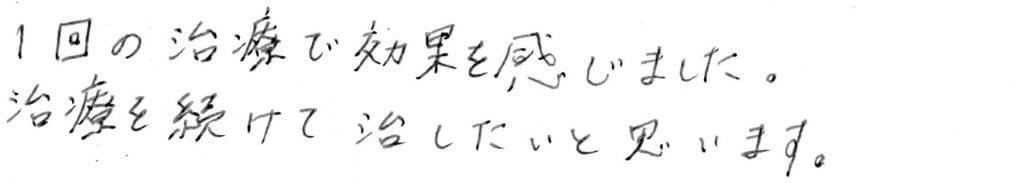 1回の治療で効果を感じました。
治療を続けて治したいと思います。